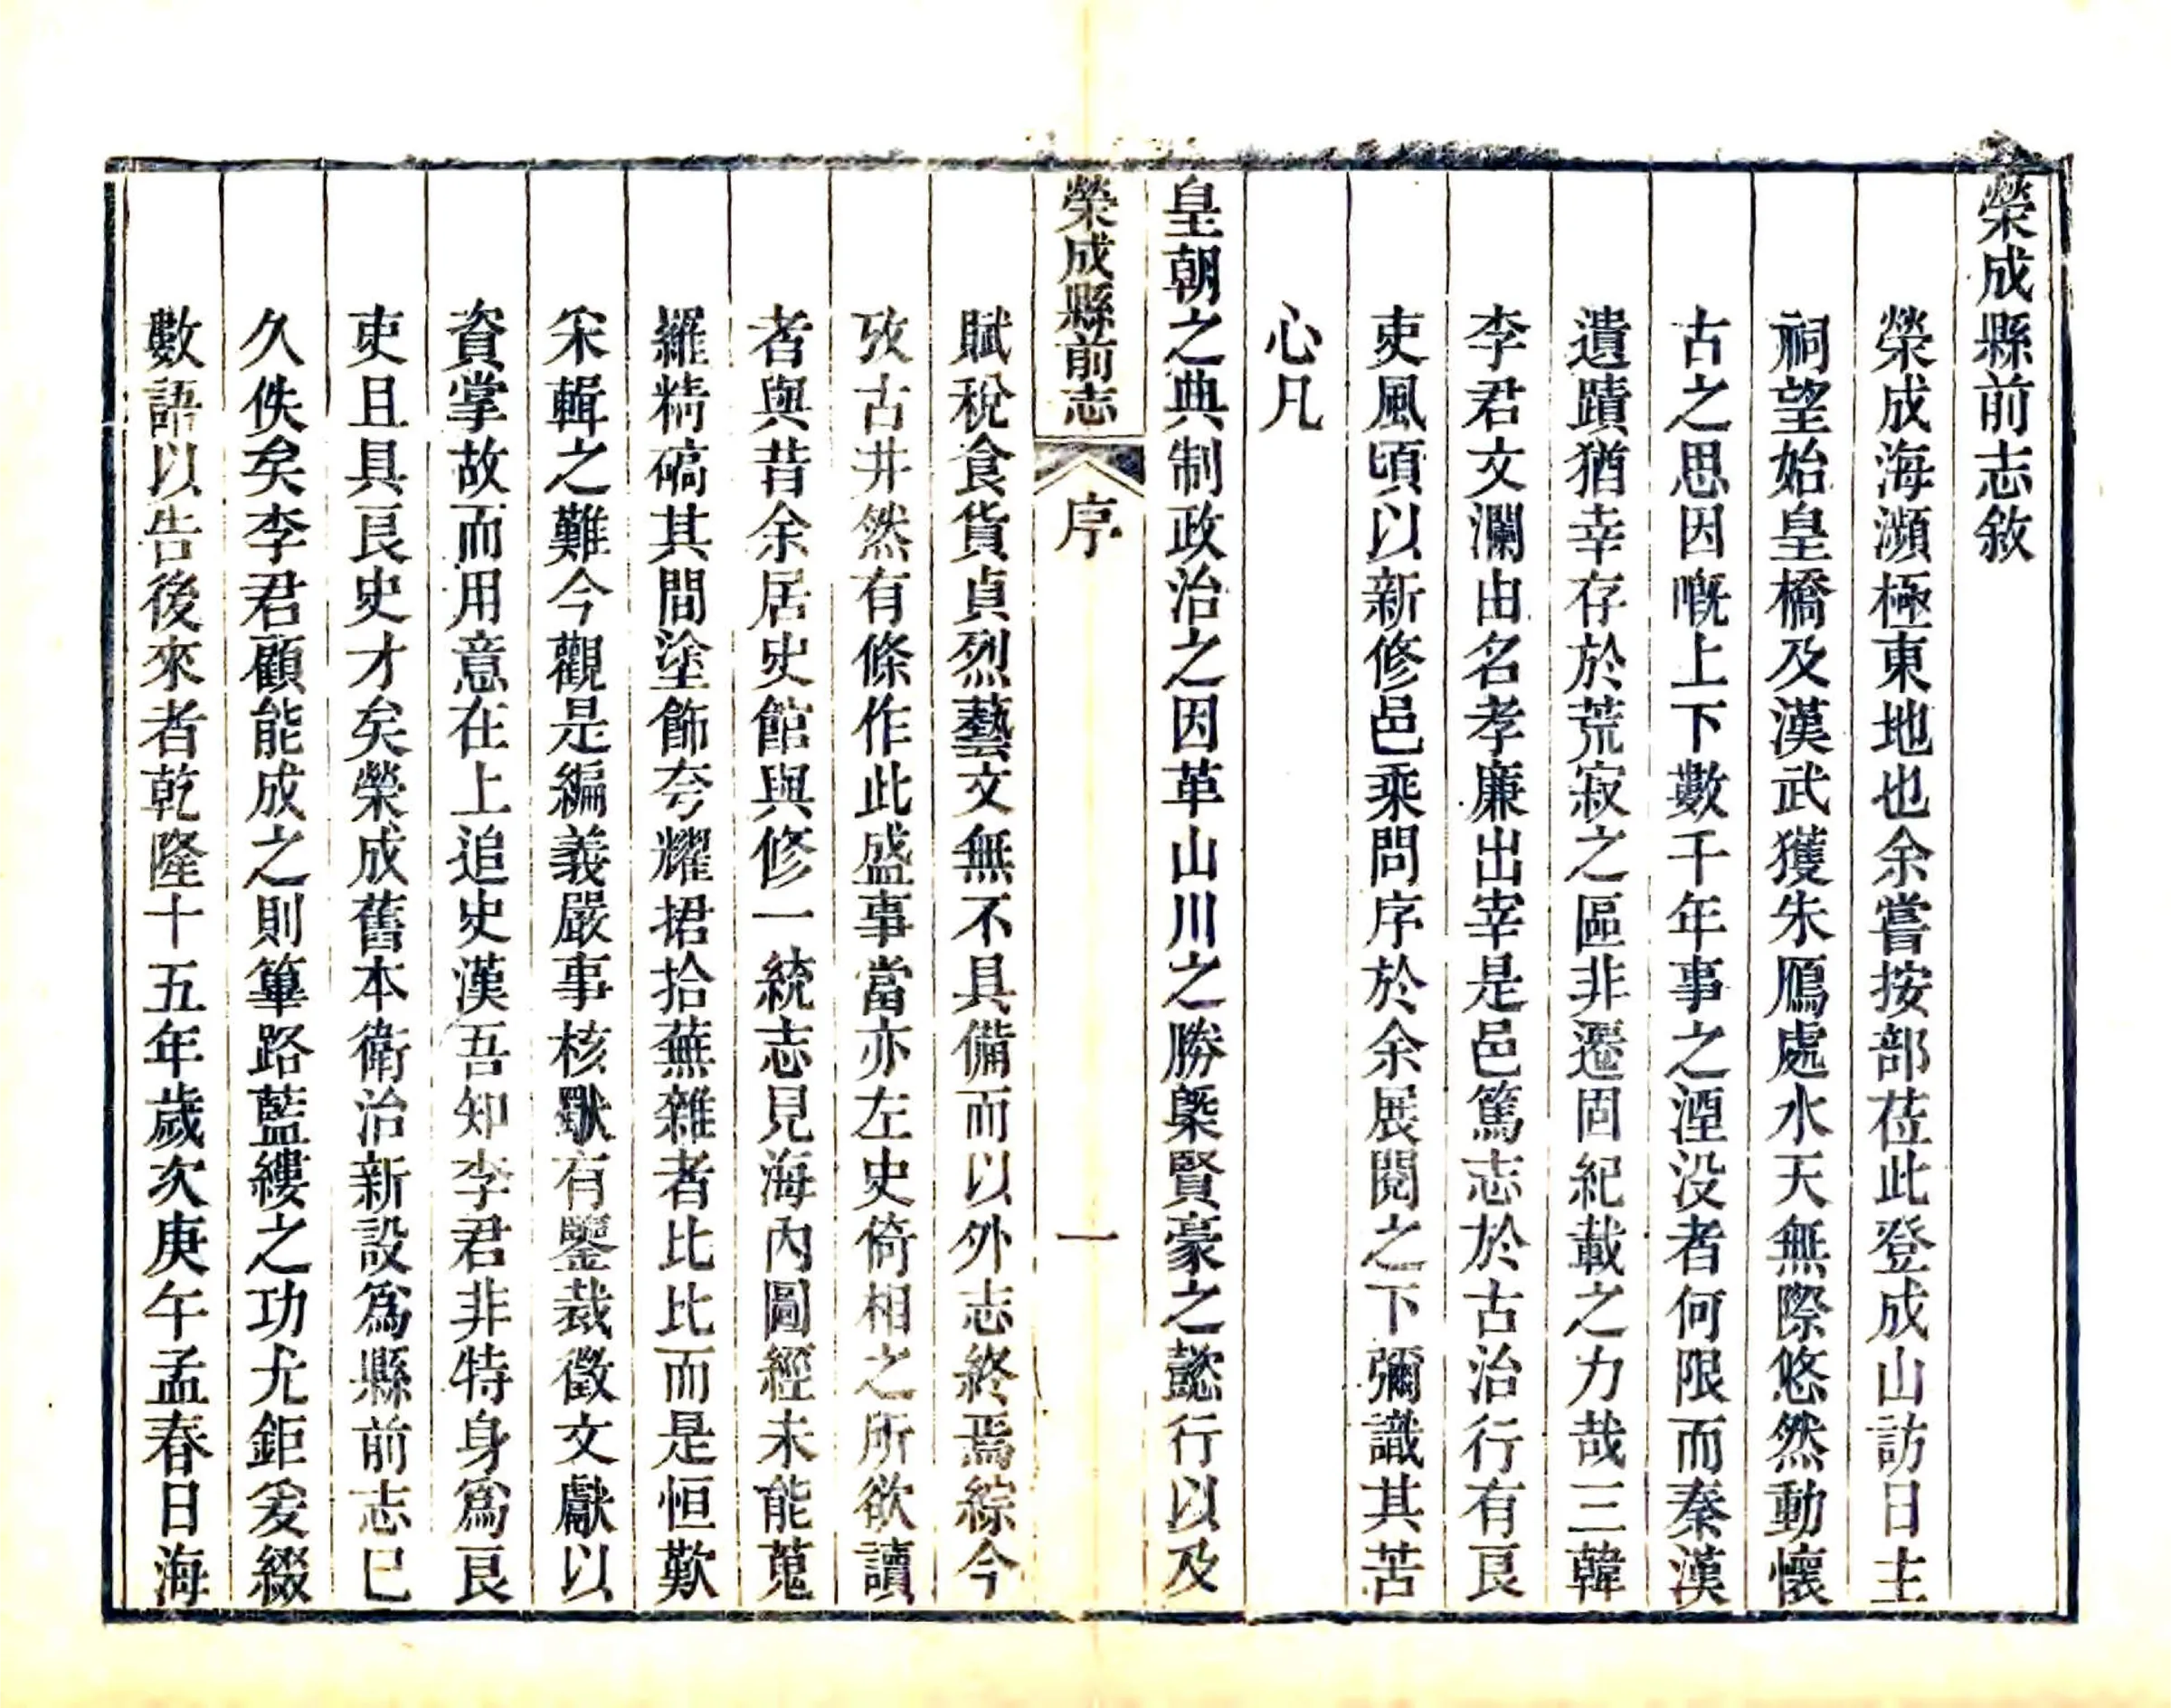 榮成縣前志敘
榮成海濒極東地也余嘗按部莅此登成山訪日主
祠望始皇橋及漢武獲朱鴈處水天無際悠然動懷
古之思因嘅上下數千年事之湮没者何限而秦漢
遺蹟猶幸存於荒寂之區非遷固紀載之力哉三韓
李君文瀾由名孝廉出宰是邑篤志於古治行有良
吏風頃以新修邑乘問序於余展閱之下彌識其苦
心凡
皇朝之典制政治之因革山川之勝槩賢豪之懿行以及
榮成縣前志
序
一
賦稅食貨貞烈藝文無不具備而以外志終焉綜今
攷古井然有條作此盛事當亦左史倚相之所欲讀
者與昔余居史館與修一統志見海內圖經未能蒐
羅精碻其間塗飾夸耀捃拾蕪雜者比比而是恒歎
宋輯之難今觀是編義嚴事核歐有鑒裁徵文獻以
資掌故而用意在上追史漢吾知李君非特身爲良
吏且具良史才矣榮成舊本衛治新設爲縣前志已
久佚矣李君顧能成之則篳路藍縷之功尤鉅爰綴
數語以告後來者乾隆十五年歲次庚午孟春日海